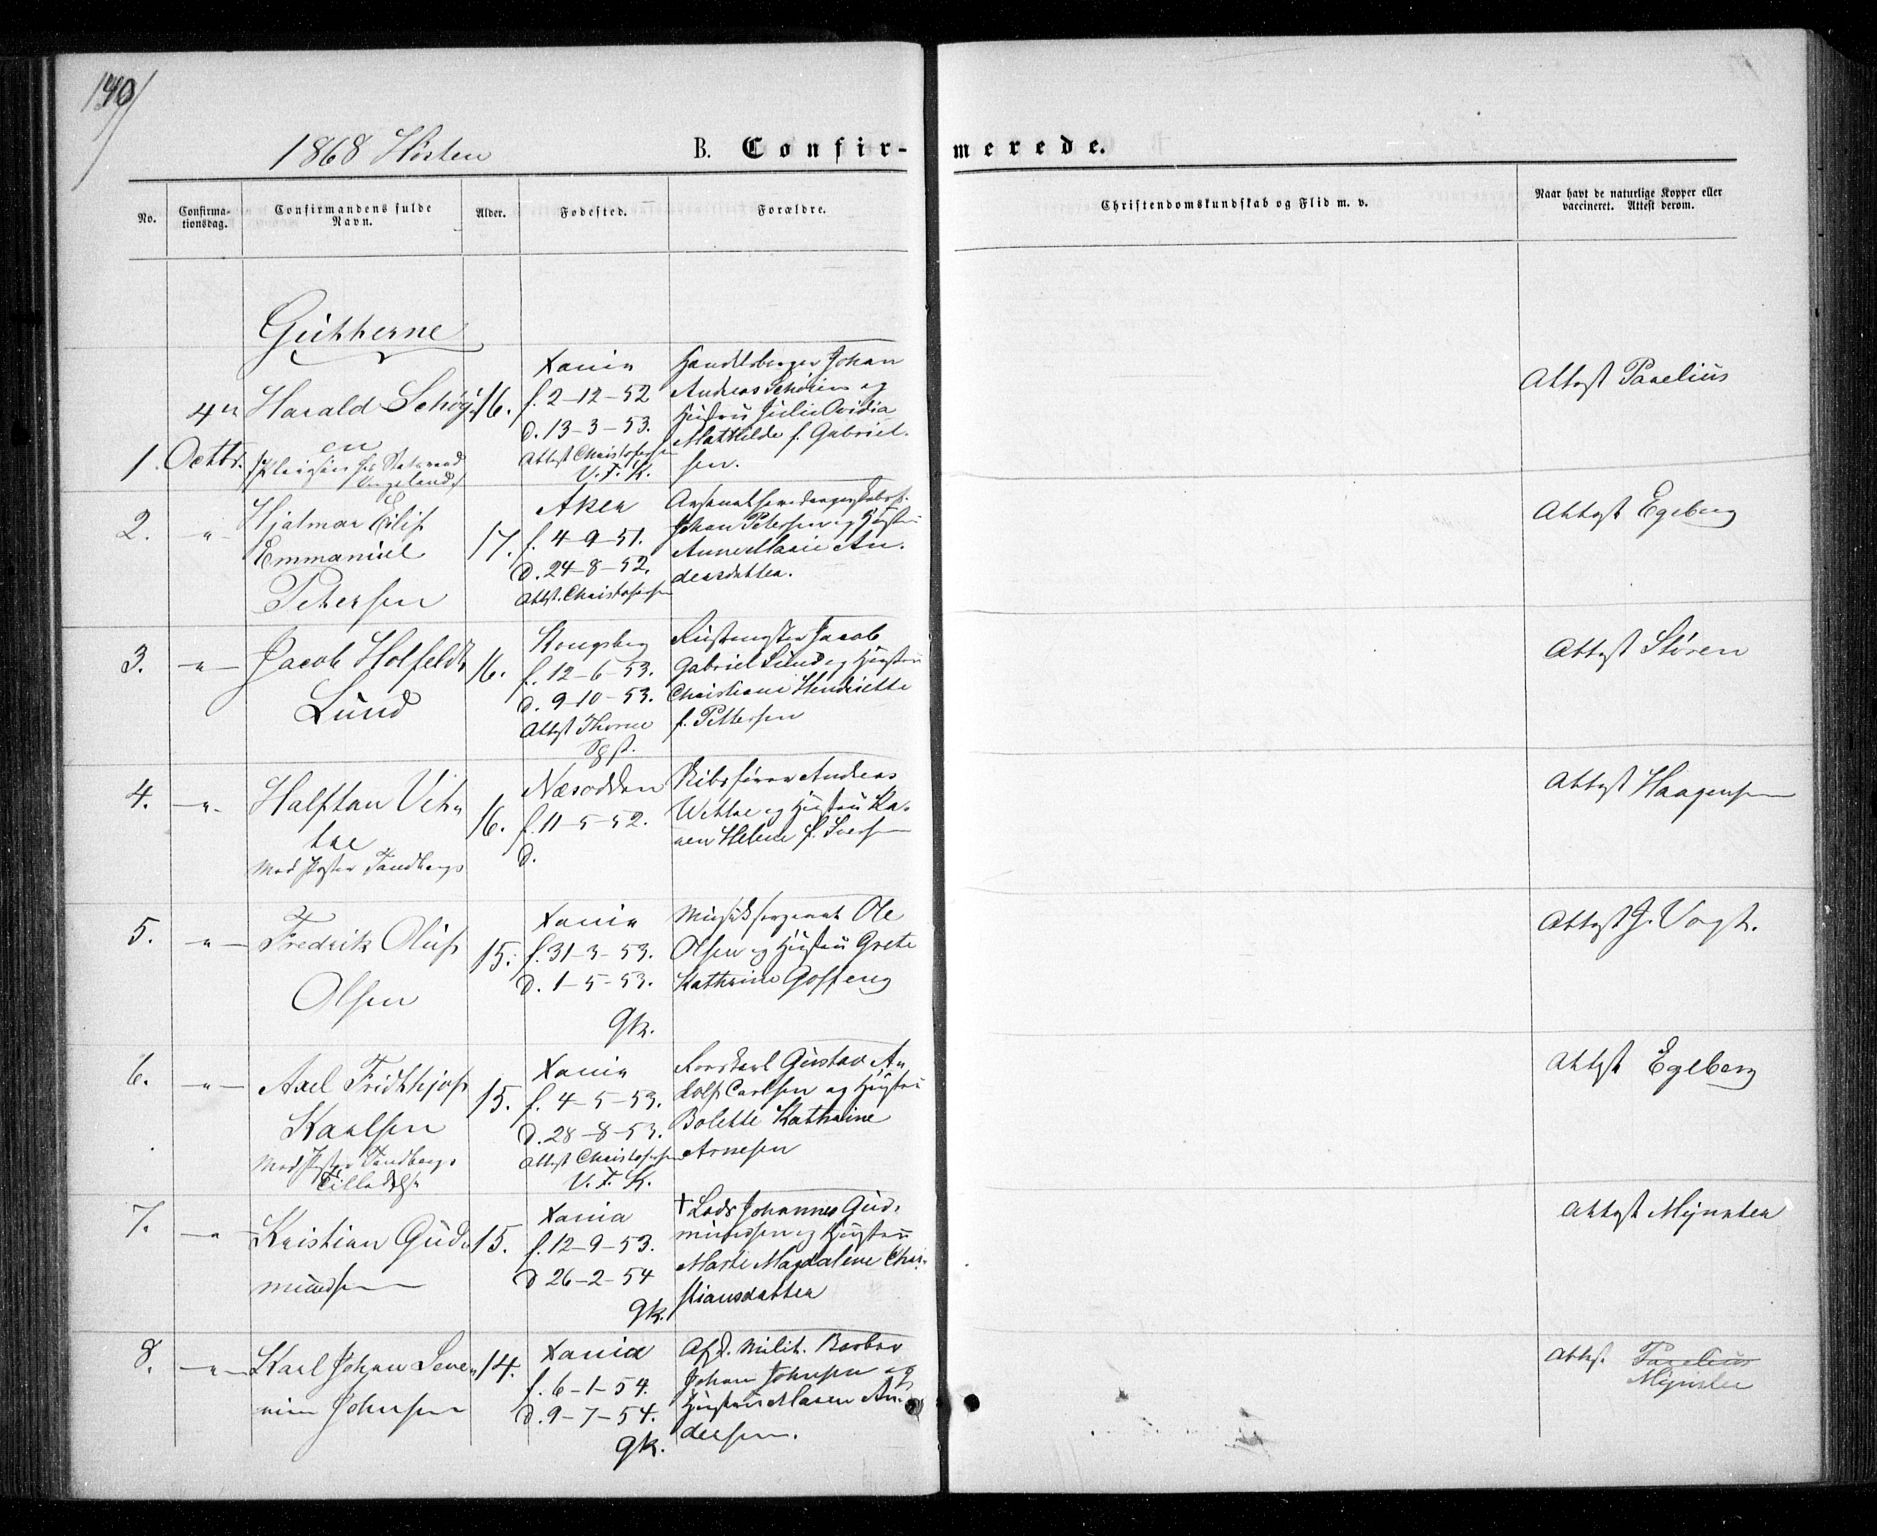 140
1868 Høsten
B. Confir-merede.
No.
Confirma-tionsdag.
Confirmandens fulde Navn.
Alder.
Fødested.
Forældre.
Christendomskundskab og Flid m. v.
Naar havt de naturlige Kopper eller vaccineret. Attest derom.
Gutterne
1. 4de Octbr.
Harald Schøy-
en
16.
Xania
f. 2-12-52
d. 13-3-53.
Attest Christophersen
V. F. K.
Handelsborger Johan
Andreas Schøien og
Hustru Julie Ovidia
Mathilde f. Gabriel-
sen.
Attest Parelius
2. -"-
Hjalmar Eilif
Emmanuel
Petersen
17.
Aker
f. 4-9-51.
d. 24-8-52.
Attest. Christophersen
Johan Petersen og Hustru
Anne Marie An-
dersdatter.
Attest Egeberg
3. -"-
Jacob Holfeldt
Lund
16.
Kongsberg
f. 12-6-53.
d. 9-10-53.
Attest Thorne
Sgpst.
Rustmester Jacob
Gabriel Lund og Hustru
Christiane Henriette
f. Pettersen
Attest Støren
4. -"-
Halftan Vet-
tre
Mod Pastor Tandbergs
16.
Næsodden
f. 11-5-52.
d.
Skibsfører Andreas
Wettre og Hustru Ka-
ren Helene f. Iversen
Attest Haagensen
5. -"-
Fredrik Oluf
Olsen
15.
Xania
f. 31-3-53.
d. 1-5-53.
gk.
Musiksergeant Ole
Olsen og Hustru Grete
Kathrine Gosseng
Attest J. Vogt.
6. -"-
Axel Fridthjof
Karlsen
Mod Pastor Tandbergs
Tilladelse
15.
Xania
f. 4-5-53.
d. 28-8-53.
Attest Christophersen
V. F. K.
Gustav A-
dolf Carlsen og Hustru
Bolette Kathrine
Arnesen
Attest Egeberg
7. -"-
Kristian Gud-
mundsen
15.
Xania
f. 12-9-53.
d 26-2-54
gk.
† Lods Johannes Gud-
mundsen og Hustru
Marte Magdalene Chri-
stiansdatter
Attest Mynster
8. -"-
Karl Johan Seve-
rin Johnsen
14.
Xania
f. 6-1-54.
d. 9-7-54.
gk.
Afsk. milit. Barber
Johan Johnsen og
Hustru Maren An-
dersen.
Attest. Parelius
Mynster